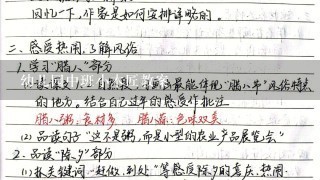 回忆一下，作家是如何安排详略的。
二、感受热闹，了解风俗
1.学习"腊八"部分
最能体现"腊八节"风俗特点
的地方。结合自己过年的感受作批注
腊八粥：食材多 腊八蒜：色味双美
(2)品读句子"这不是粥，而是小型的农业产品展览会"
2.品读"除夕"部分
(1)抓关键词"赶做、到处"等感度除夕的喜庆、热闹